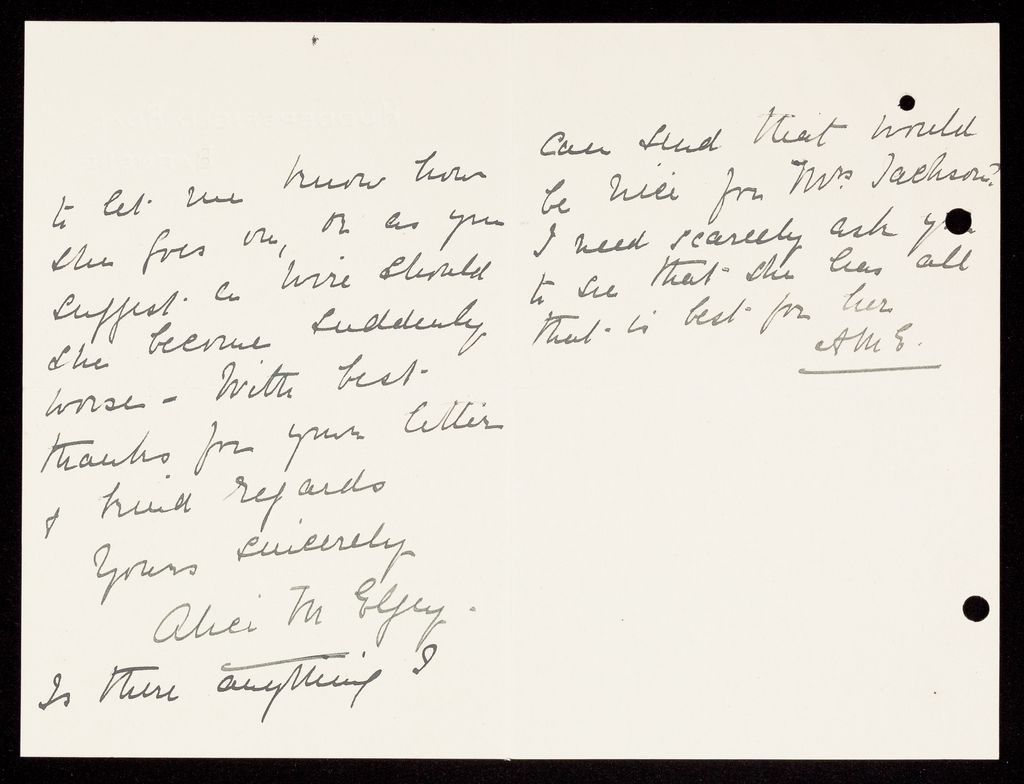 to let me know how
she goes on, or as you
suggest a wire should
she become suddenly
worse - With best
thanks for your letter
& kind regards
Yours sincerely
Alice M
Is there anything I
can send that would
be nice for Mrs. Jackson?
I need scarcely ask you
to see that she has all
that is best for her
AME.